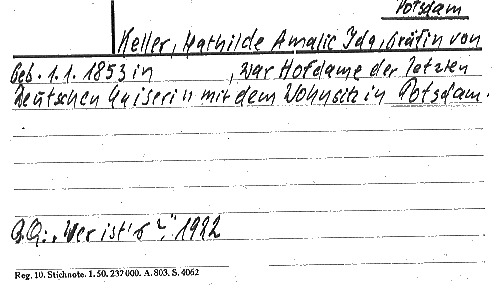 Potsdam
Keller, Mathilde Amalie Ida, Gräfin von
geb. 1.1. 1853 in , war Hofdame der letzten
Deutschen Kaiserin mit dem Wohnsitz in Potsdam.
Q.Q.: „Wer ist's?“, 1922
Reg. 10. Stichnote. 1. 50. 237 000. A. 803. S. 4062